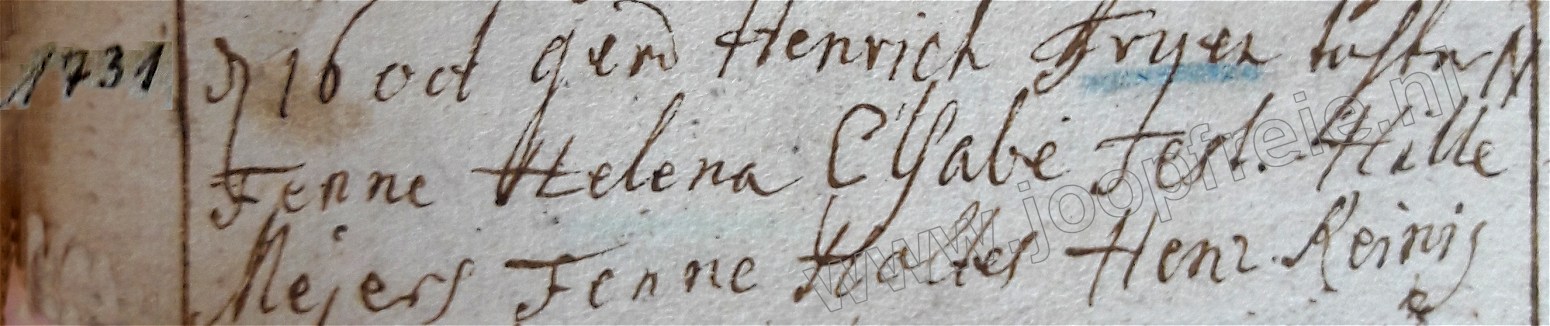 1731 d 16 oct gerd Henrich Fryer tochter N
Fenne Helena Elsabe Test. Hille
Meyers Fenne Kattes Henr. Reinig
www.joopfreie.nl